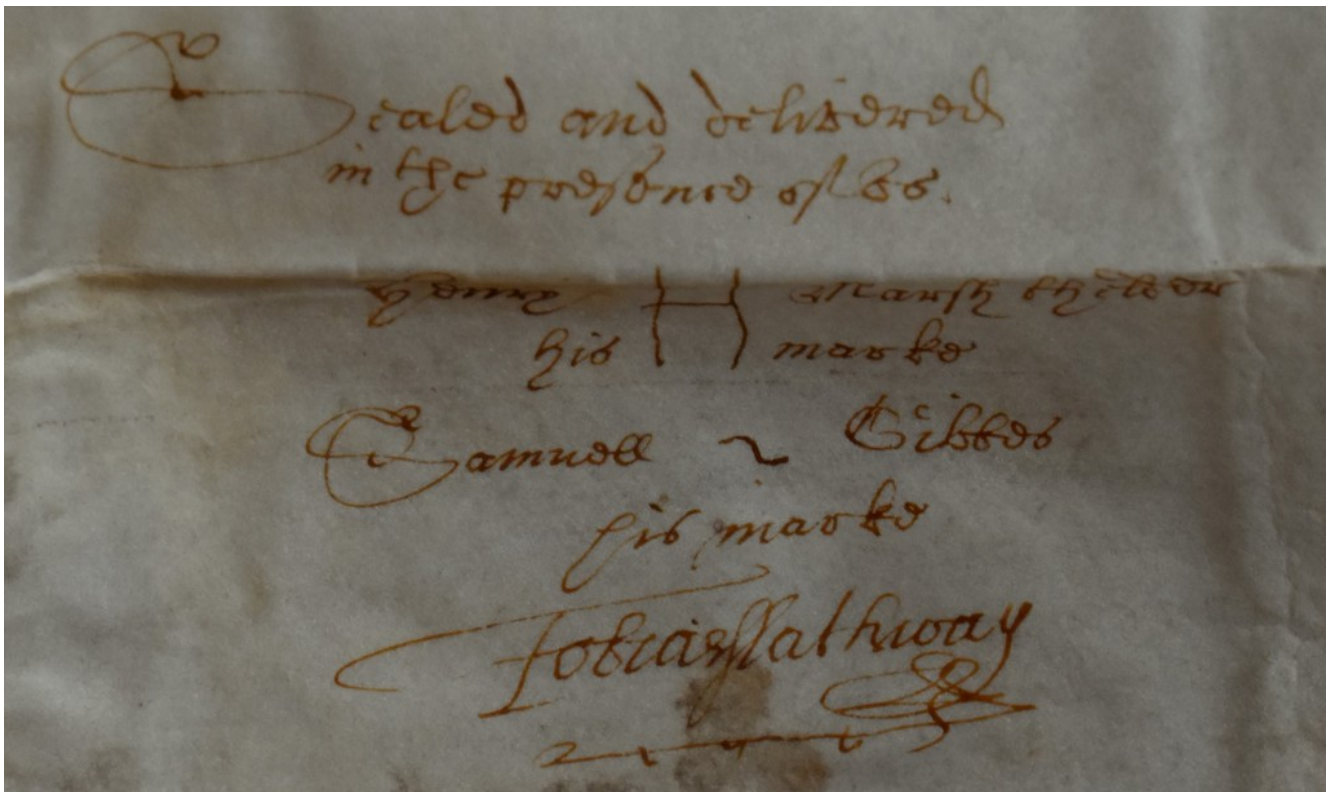 Sealed and delivered
in the presence of vs.
Henry H Marsh the elder
his marke
Samuell ~ Gibbes
his marke
Tobias Hathway